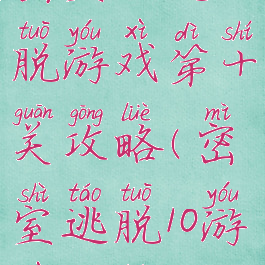 tuō yóu xì dì shí
脱游戏第十
guān gōng lüè mì
关攻略(密
shì táo tuō yóu
室逃脱10游